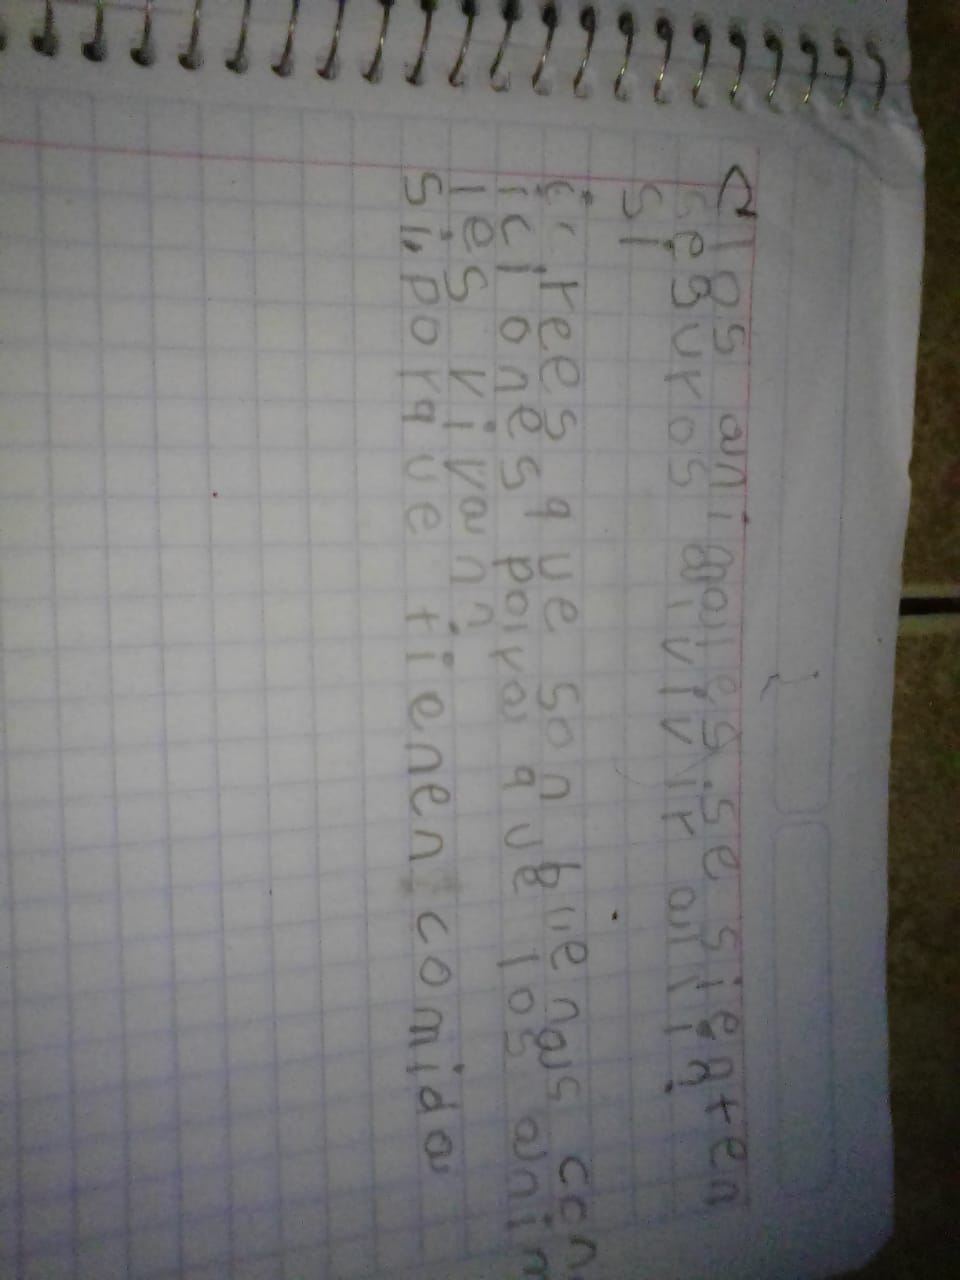 ¿los animales.se sienten
seguros vivir alli?
si
¿crees que son buenas con
iciones para que los anim
les vivan?
si, porque tienen comida